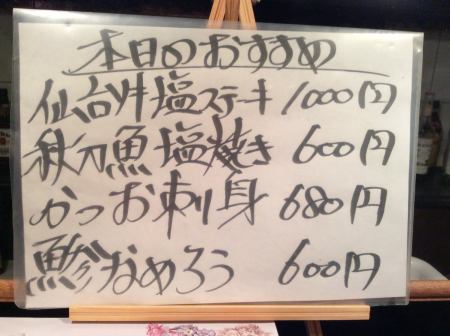 本日のおすすめ
仙台牛塩ステーキ 1000円
秋刀魚塩焼き 600円
かつお刺身 680円
鯵なめろう 600円